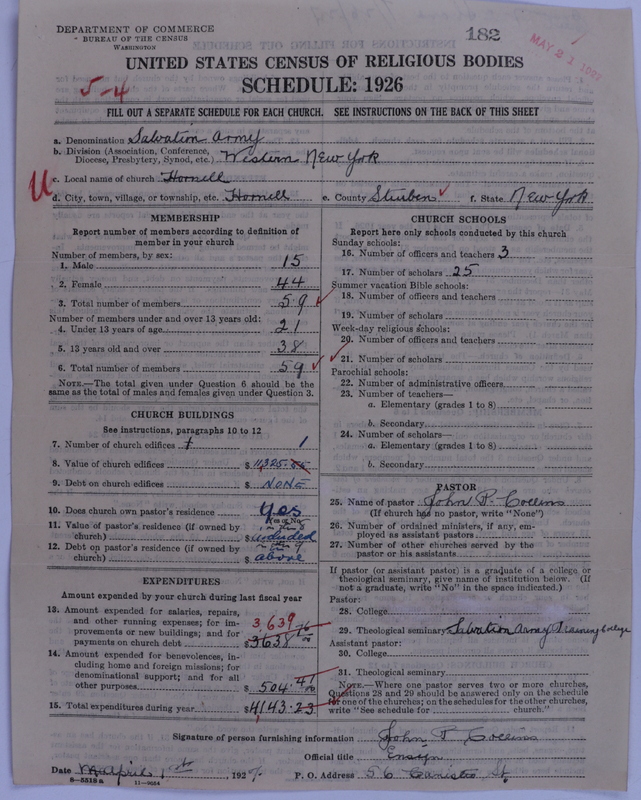 DEPARTMENT OF COMMERCE
BUREAU OF THE CENSUS
WASHINGTON
182
MAY 21 1927
UNITED STATES CENSUS OF RELIGIOUS BODIES
SCHEDULE: 1926
5-4
FILL OUT A SEPARATE SCHEDULE FOR EACH CHURCH. SEE INSTRUCTIONS ON THE BACK OF THIS SHEET
a. Denomination Salvation Army
b. Division (Association, Conference, Diocese, Presbytery, Synod, etc.) Western New York
c. Local name of church Hornell
d. City, town, village, or township, etc. Hornell e. County Stuben f. State New York
MEMBERSHIP
Report number of members according to definition of
member in your church
Number of members, by sex:
1. Male 15
2. Female 44
3. Total number of members 59
Number of members under and over 13 years old:
4. Under 13 years of age 21
5. 13 years old and over 38
6. Total number of members 59
NOTE.—The total given under Question 6 should be the
same as the total of males and females given under Question 3.
CHURCH BUILDINGS
See instructions, paragraphs 10 to 12
7. Number of church edifices 1
8. Value of church edifices $
9. Debt on church edifices $ NONE
10. Does church own pastor's residence Yes
(Yes or No)
11. Value of pastor's residence (if owned by
church) $ included
12. Debt on pastor's residence (if owned by
church) $ above
EXPENDITURES
Amount expended by your church during last fiscal year
13. Amount expended for salaries, repairs,
and other running expenses; for im- 3,639
provements or new buildings; and for
payments on church debt $ 3638 76
14. Amount expended for benevolences, in-
cluding home and foreign missions; for
denominational support; and for all
other purposes $ 504. 47
15. Total expenditures during year $ 4143.23
CHURCH SCHOOLS
Report here only schools conducted by this church
Sunday schools:
16. Number of officers and teachers 3
17. Number of scholars 25
Summer vacation Bible schools:
18. Number of officers and teachers
19. Number of scholars
Week-day religious schools:
20. Number of officers and teachers
21. Number of scholars
Parochial schools:
22. Number of administrative officers
23. Number of teachers—
a. Elementary (grades 1 to 8)
b. Secondary
24. Number of scholars—
a. Elementary (grades 1 to 8)
b. Secondary
PASTOR
25. Name of pastor John P. Collins
(If church has no pastor, write "None")
26. Number of ordained ministers, if any, em-
ployed as assistant pastors
27. Number of other churches served by the
pastor or his assistants
If pastor (or assistant pastor) is a graduate of a college or
theological seminary, give name of institution below. (If
not a graduate, write "No" in the space indicated.)
Pastor:
28. College
29. Theological seminary Salvation Army Training College
Assistant pastor:
30. College
31. Theological seminary
NOTE.—Where one pastor serves two or more churches,
Questions 28 and 29 should be answered only on the schedule
for one of the churches; on the schedules for the other churches,
write "See schedule for church."
Signature of person furnishing information John P. Collins
Official title Ensign
Date April 1st 1927. P. O. Address 56 Canisteo St.
8—5518 a 11—9034